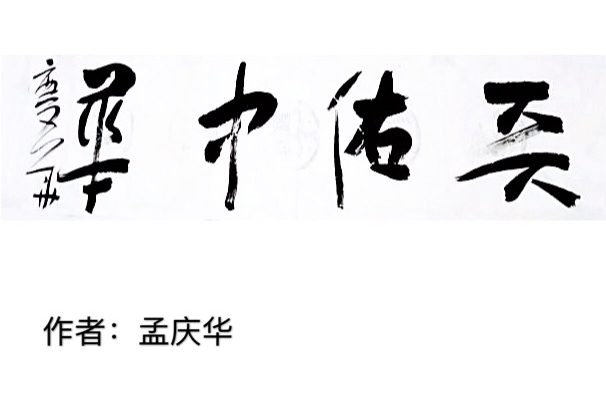 天佑中華
慶華
作者：孟庆华